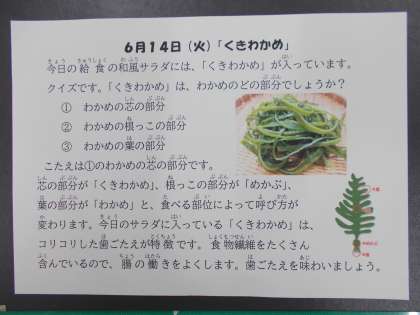 6月14日（火）「くきわかめ」
今日の給食の和風サラダには、「くきわかめ」が入っています。
クイズです。「くきわかめ」は、わかめのどの部分でしょうか？
① わかめの芯の部分
② わかめの根っこの部分
③ わかめの葉の部分
こたえは①のわかめの芯の部分です。
芯の部分が「くきわかめ」、根っこの部分が「めかぶ」、
葉の部分が「わかめ」と、食べる部位によって呼び方が
変わります。今日のサラダに入っている「くきわかめ」は、
コリコリした歯ごたえが特徴です。食物繊維をたくさん
含んでいるので、腸の働きをよくします。歯ごたえを味わいましょう。